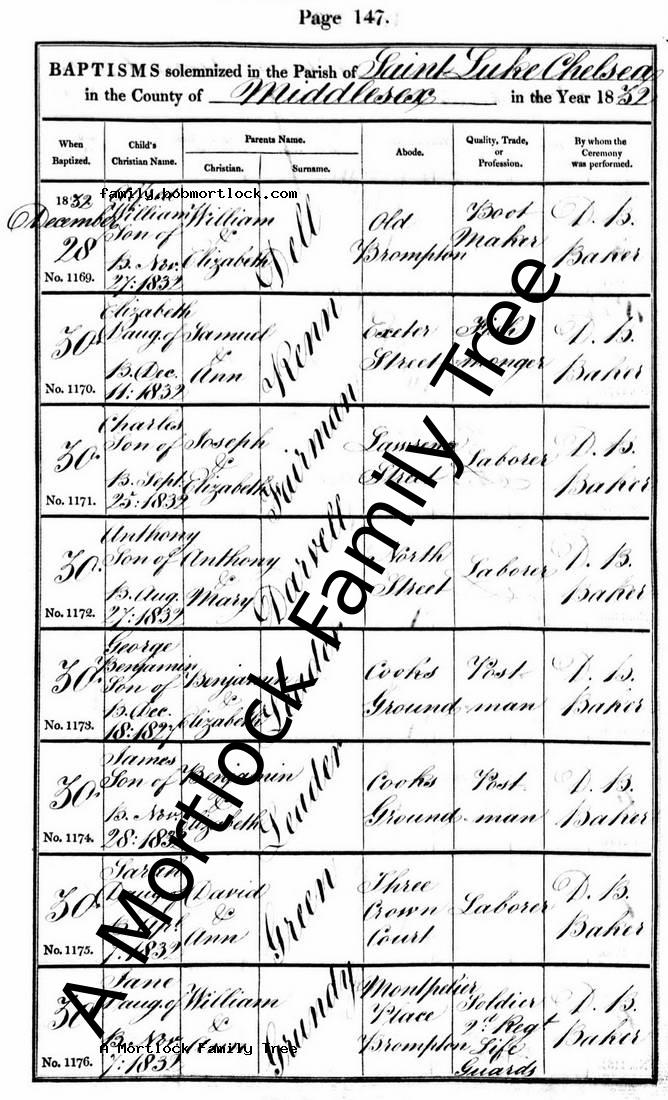 Page 147.
BAPTISMS solemnized in the Parish of Saint Luke Chelsea
in the County of Middlesex in the Year 1832
When Baptized.
Child's Christian Name.
Parents Name.
Christian.
Surname.
Abode.
Quality, Trade, or Profession.
By whom the Ceremony was performed.
family.hobmortlock.com
1832
December
28
No. 1169.
William
Son of
B. Nov.
27: 1832
William
&
Elizabeth
Dell
Old
Brompton
Boot
Maker
D. B.
Baker
30
No. 1170.
Elizabeth
Daug. of
B. Dec.
11: 1832
Samuel
&
Ann
Kenn
Exeter
Street
Fish
monger
D. B.
Baker
30
No. 1171.
Charles
Son of
B. Sept.
25: 1832
Joseph
&
Elizabeth
Fairman
Lawrence
Street
Laborer
D. B.
Baker
30
No. 1172.
Anthony
Son of
B. Aug.
27: 1832
Anthony
&
Mary
Darvell
North
Street
Laborer
D. B.
Baker
30
No. 1173.
George
Benjamin
Son of
B. Dec.
18: 1827
Benjamin
&
Elizabeth
Cooks
Ground
Post
man
D. B.
Baker
30
No. 1174.
James
Son of
B. Nov.
28: 1832
Benjamin
&
Elizabeth
Leader
Cooks
Ground
Post
man
D. B.
Baker
30
No. 1175.
Sarah
Daug. of
7: 1832
David
&
Ann
Green
Three
Crown
Court
Laborer
D. B.
Baker
30
No. 1176.
Jane
Daug. of
B. Nov.
7: 1831
William
&
Grundy
Montpelier
Place
Brompton
Soldier
2d Regt
Life
Guards
D. B.
Baker
A Mortlock Family Tree
A Mortlock Family Tree